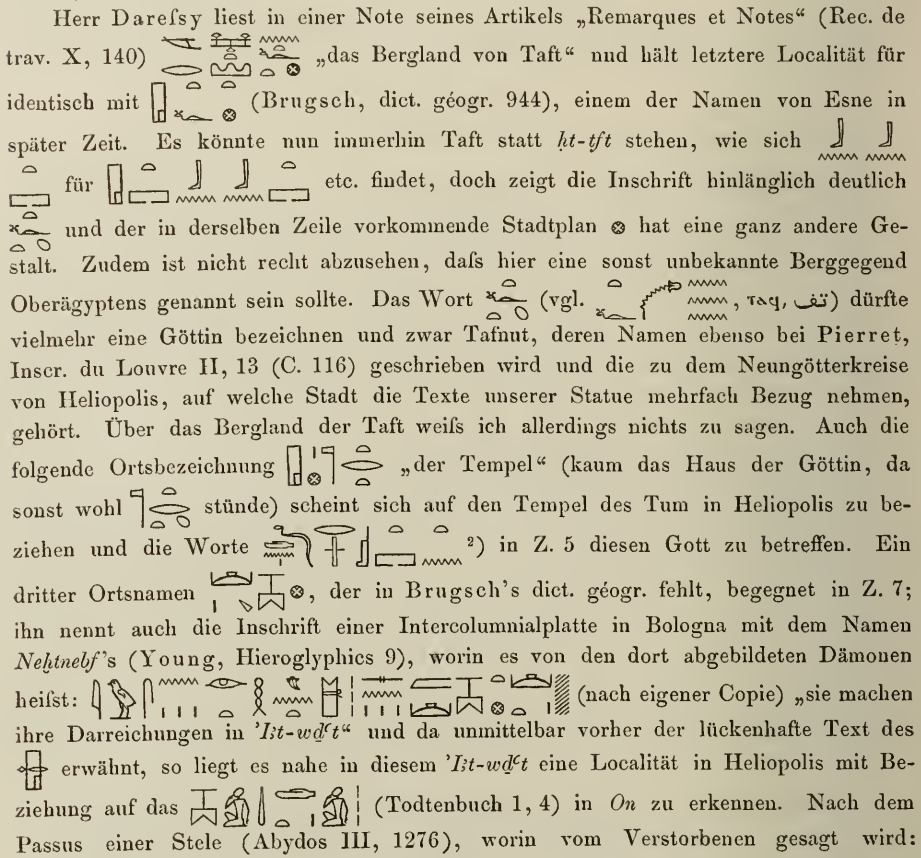 Herr Dareſsy liest in einer Note seines Artikels „Remarques et Notes“ (Rec. de
trav. X, 140) „das Bergland von Taft“ und hält letztere Localität für
identisch mit (Brugsch, dict. géogr. 944), einem der Namen von Esne in
später Zeit. Es könnte nun immerhin Taft statt ḥt-tft stehen, wie sich
für etc. findet, doch zeigt die Inschrift hinlänglich deutlich
und der in derselben Zeile vorkommende Stadtplan hat eine ganz andere Ge-
stalt. Zudem ist nicht recht abzusehen, daſs hier eine sonst unbekannte Berggegend
Oberägyptens genannt sein sollte. Das Wort (vgl. , ⲧⲁϥ, تف) dürfte
vielmehr eine Göttin bezeichnen und zwar Tafnut, deren Namen ebenso bei Pierret,
Inscr. du Louvre II, 13 (C. 116) geschrieben wird und die zu dem Neungötterkreise
von Heliopolis, auf welche Stadt die Texte unserer Statue mehrfach Bezug nehmen,
gehört. Über das Bergland der Taft weiſs ich allerdings nichts zu sagen. Auch die
folgende Ortsbezeichnung „der Tempel“ (kaum das Haus der Göttin, da
sonst wohl stünde) scheint sich auf den Tempel des Tum in Heliopolis zu be-
ziehen und die Worte ²) in Z. 5 diesen Gott zu betreffen. Ein
dritter Ortsnamen , der in Brugsch's dict. géogr. fehlt, begegnet in Z. 7;
ihn nennt auch die Inschrift einer Intercolumnialplatte in Bologna mit dem Namen
Neḫtnebf's (Young, Hieroglyphics 9), worin es von den dort abgebildeten Dämonen
heiſst: (nach eigener Copie) „sie machen
ihre Darreichungen in 'Iꜣt-wḏꜥt“ und da unmittelbar vorher der lückenhafte Text des
erwähnt, so liegt es nahe in diesem 'Iꜣt-wḏꜥt eine Localität in Heliopolis mit Be-
ziehung auf das (Todtenbuch 1, 4) in On zu erkennen. Nach dem
Passus einer Stele (Abydos III, 1276), worin vom Verstorbenen gesagt wird: